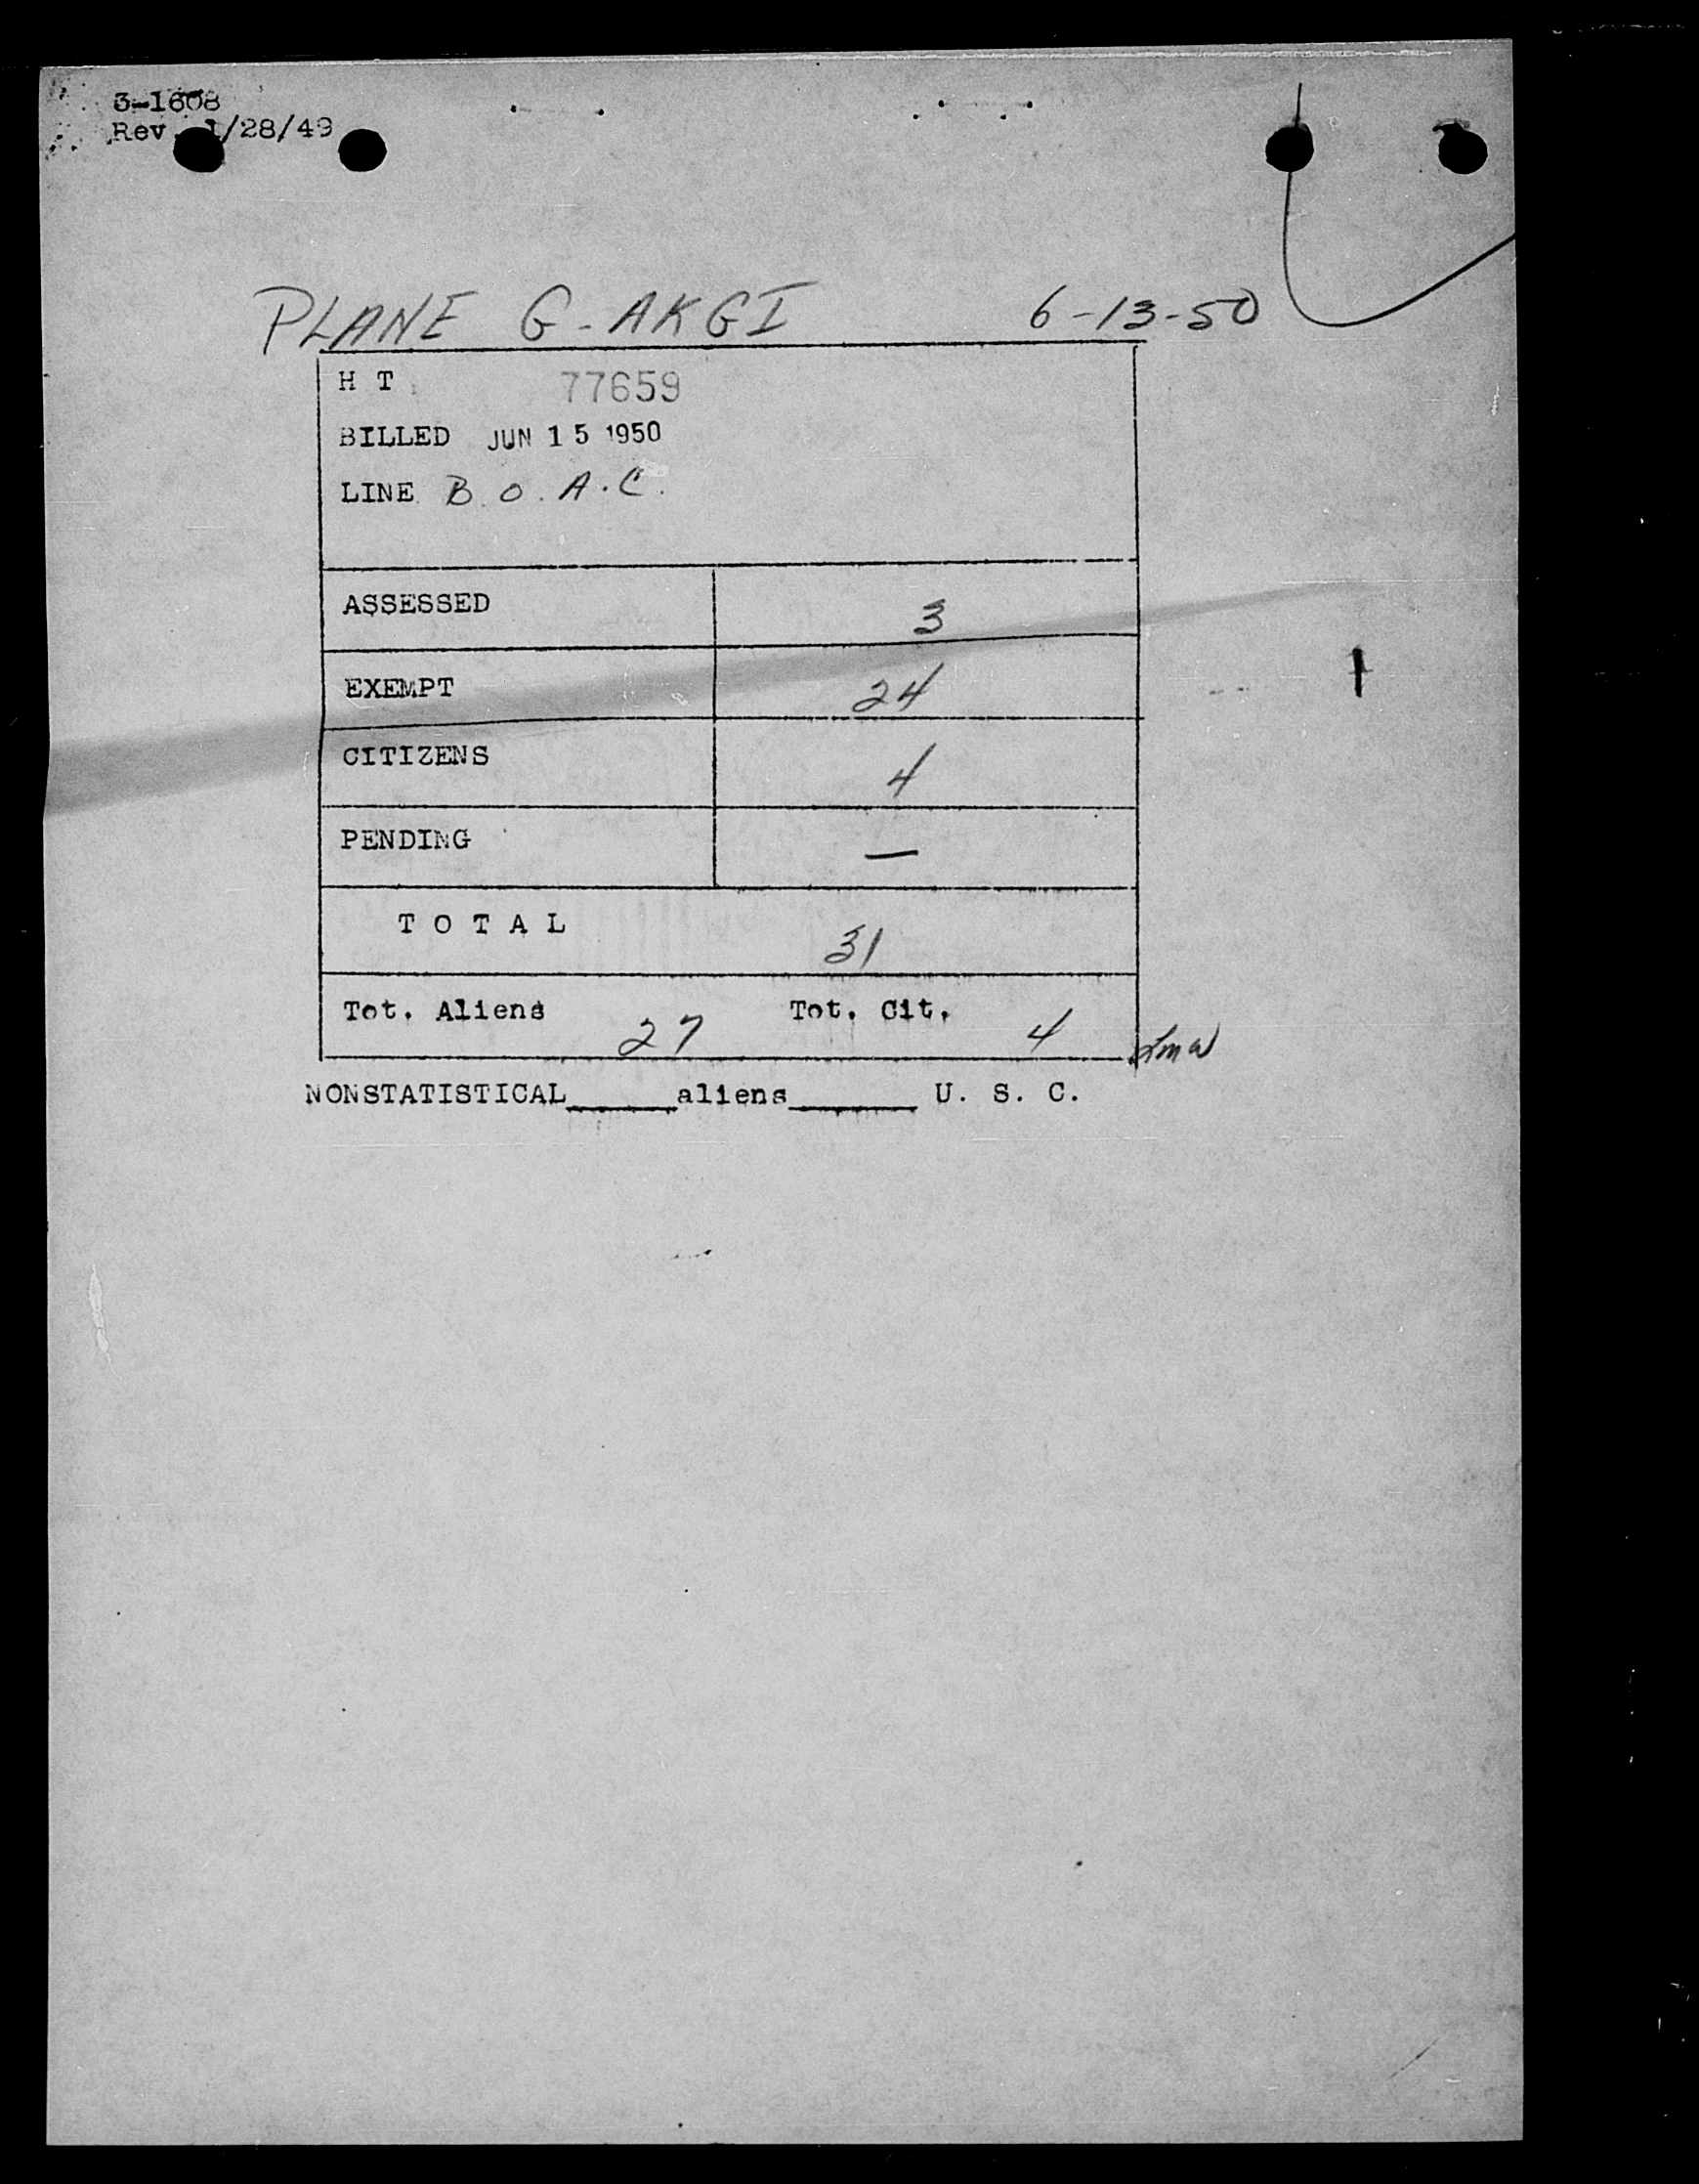 3-1608
Rev. 1/28/49
PLANE G-AKGI 6-13-50
H T 77659
BILLED JUN 15 1950
LINE B.O.A.C.
ASSESSED 3
EXEMPT 24
CITIZENS 4
PENDING —
T O T A L 31
Tot. Aliens 27 Tot. Cit. 4
NONSTATISTICAL______aliens_______ U. S. C.